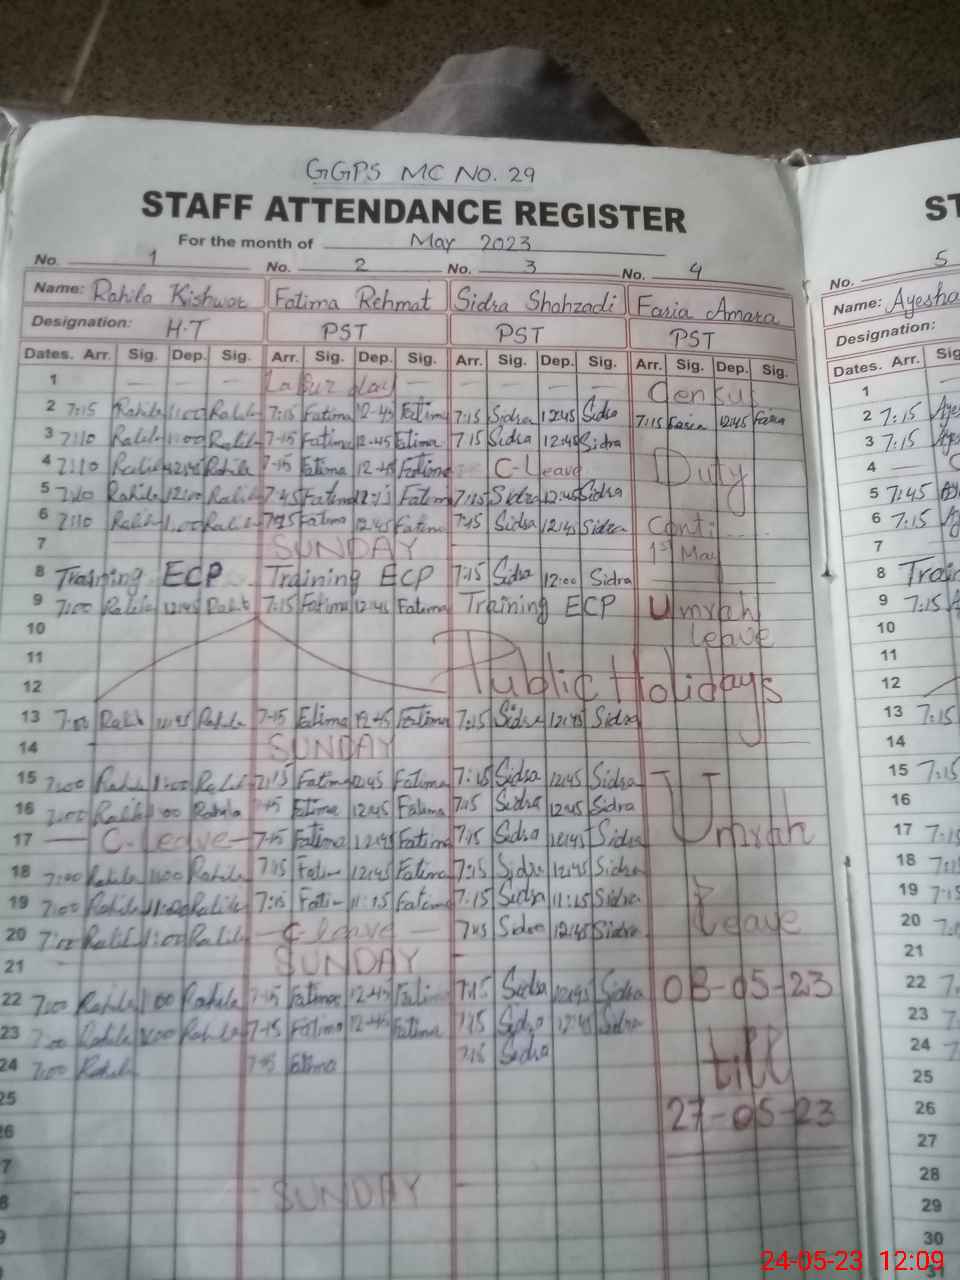 GGPS MC NO. 29
STAFF ATTENDANCE REGISTER
For the month of May 2023
No. 1 No. 2 No. 3 No. 4
Name: Rahila Kishwar Fatima Rehmat Sidra Shahzadi Faria Amara
Designation: H.T PST PST PST
Dates. Arr. Sig. Dep. Sig. Arr. Sig. Dep. Sig. Arr. Sig. Dep. Sig. Arr. Sig. Dep. Sig.
1 Labur day Census
2 7:15 Rahila 1:00 Rahila 7:15 Fatima 12-45 Fatima 7:15 Sidra 12:45 Sidra 7:15 Faria 12:45 Faria
3 7:10 Rahila 1:00 Rahila 7-15 Fatima 12-45 Fatima 7:15 Sidra 12:45 Sidra
4 7:10 Rahila 12:45 Rahila 7-15 Fatima 12-45 Fatima C-Leave Duty
5 7:10 Rahila 12:00 Rahila 7:45 Fatima Fatima 7:15 Sidra 12:45 Sidra
6 7:10 Rahila 1:00 Rahila Fatima 12:45 Fatima 7:15 Sidra 12:45 Sidra Conti....
7 SUNDAY 1st May
8 Training ECP Training ECP 7:15 Sidra 12:00 Sidra
9 7:00 Rahila 12:45 Rahila 7:15 Fatima 12:45 Fatima Training ECP Umrah
10 leave
11
12 Public Holidays
13 7:00 Rahila 12:45 Rahila 7-15 Fatima 12-45 Fatima 7:15 Sidra 12:45 Sidra
14 SUNDAY
15 7:00 Rahila 1:00 Rahila 7:15 Fatima 12:45 Fatima 7:15 Sidra 12:45 Sidra
16 7:00 Rahila 1:00 Rahila Fatima 12:45 Fatima 7:15 Sidra 12:45 Sidra Umrah
17 C-Leave 7-15 Fatima 12:45 Fatima 7:15 Sidra 12:45 Sidra
18 7:00 Rahila 1:00 Rahila 7:15 Fatima 12:45 Fatima 7:15 Sidra 12:45 Sidra
19 7:00 Rahila 11:00 Rahila 7:15 Fatima 11:15 Fatima 7:15 Sidra 11:15 Sidra
20 7:00 Rahila 1:00 Rahila C leave 7:15 Sidra 12:45 Sidra Leave
21 SUNDAY
22 7:00 Rahila 1:00 Rahila 7-15 Fatima 12-45 Fatima 7:15 Sidra 12:45 Sidra 08-05-23
23 7:00 Rahila 1:00 Rahila 7-15 Fatima 12-45 Fatima 7:15 Sidra 12:45 Sidra
24 7:00 Rahila 7-15 Fatima 7:15 Sidra till
25
26 27-05-23
7
8 SUNDAY
9
ST
No. 5
Name: Ayesha
Designation:
Dates. Arr. Sig
1
2 7:15
3 7:15
4
5 7:45
6 7:15
7
8
9 7:15
10
11
12
13 7:15
14
15 7:15
16
17
18
19
20
21
22
23
24
25
26
27
28
29
30
31
24-05-23 12:09